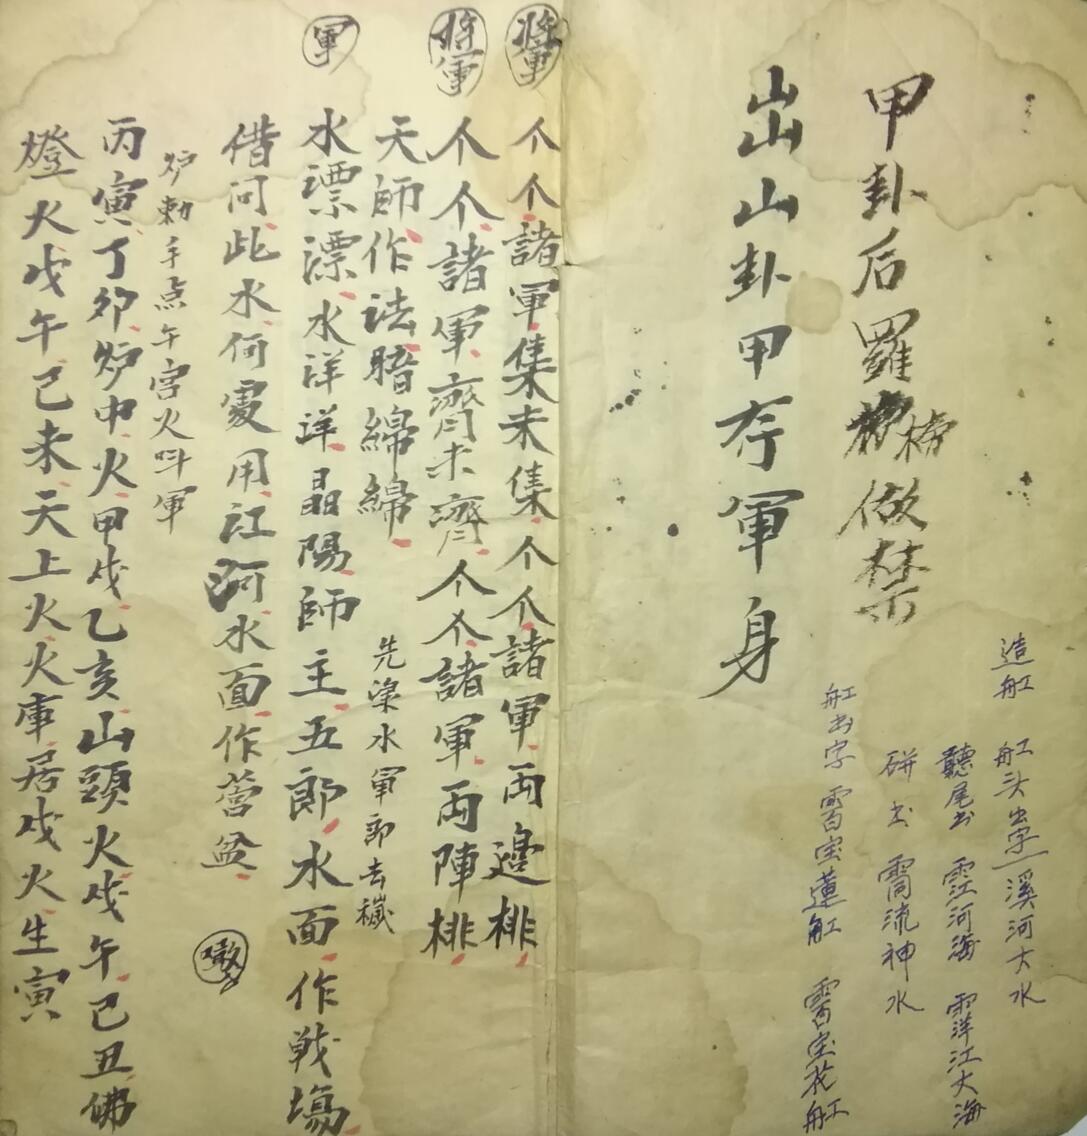 造舡 舡头出字 溪河大水
聽尾出 江河海 洋江大海
出 流神水
舡出字 宝蓮舡 宝花舡
甲卦后羅 榜做禁
出山山卦甲存軍身
將軍 个个諸軍集未集个个諸軍両邊排
將軍 个个諸軍齊未齊个个諸軍両陣排
天師作法暗綿綿 先梁水軍郎去穢
軍 水漂漂水洋洋晶陽師主五郎水面作戦場
借问此水何處用江河水面作营盆
炉勅手点午宫火叫軍
丙寅丁卯炉中火甲戍乙亥山頭火戍午己丑佛
燈火戍午己未天上火火庫居戍火生寅